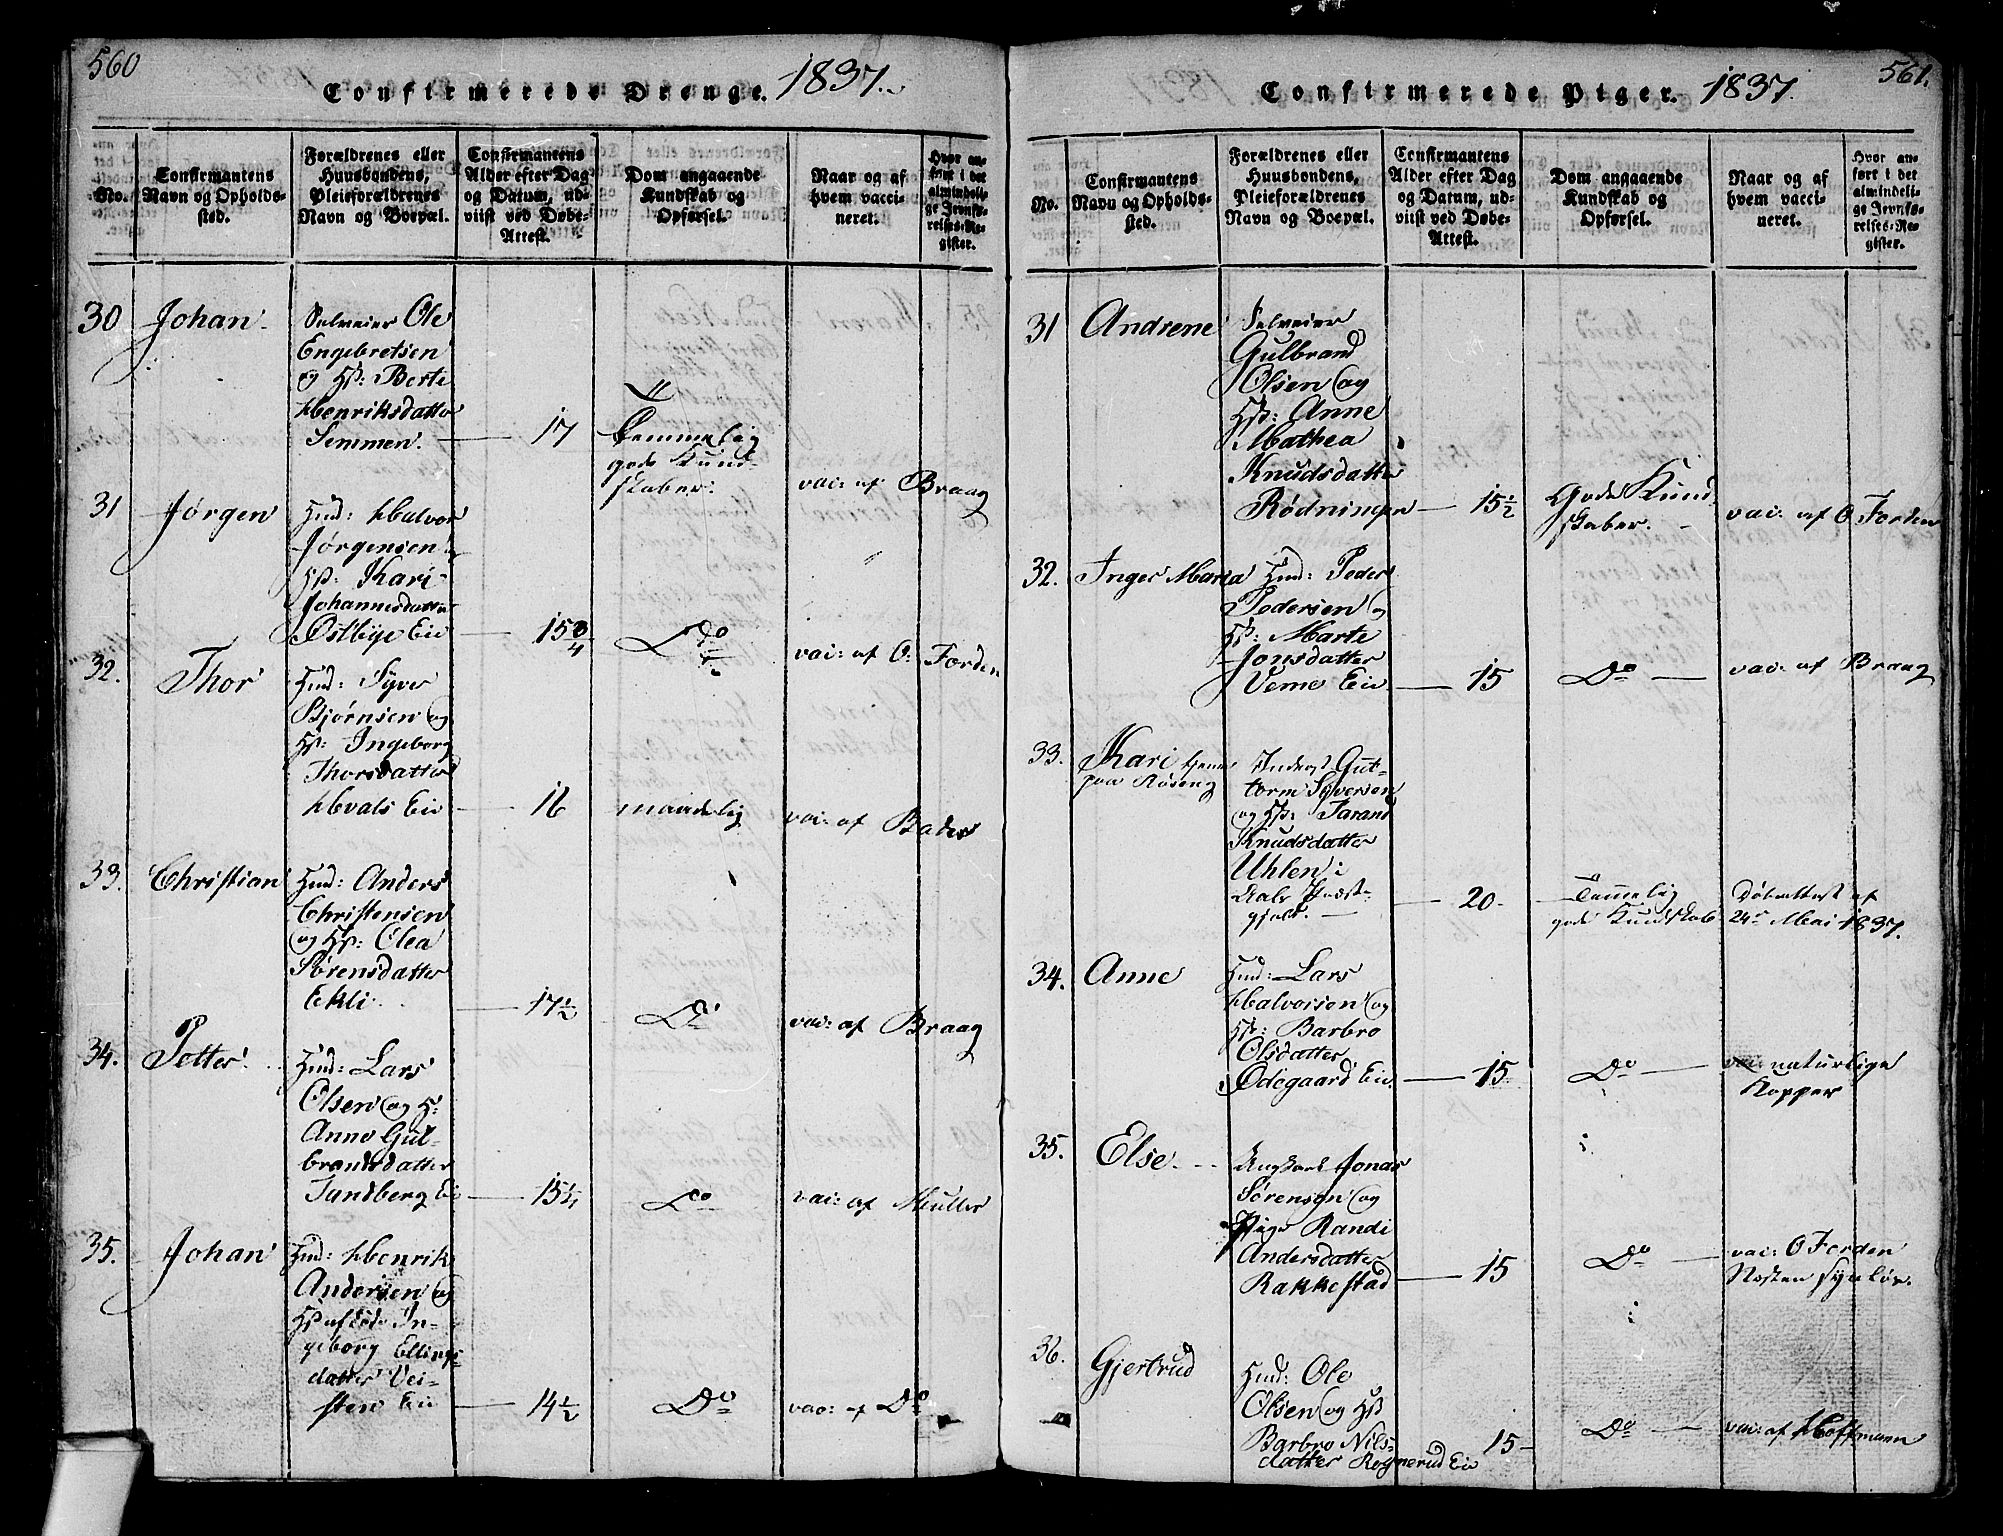 560
Confirmerede Drenge. 1837.
No.
Confirmantens
Navn og Opholds-
sted.
Forældrenes eller
Huusbondens,
Pleieforældrenes
Navn og Boepæl.
Confirmantens
Alder efter Dag
og Datum, ud-
viist ved Døbe-
Attest.
Dom angaaende
Kundskab og
Opførsel.
Naar og af
hvem vacci-
neret.
Hvor an-
ført i det
almindeli-
ge Jevnfø-
relses-Re-
gister.
30 Johan
Selveier Ole
Engebretsen
og Hst: Berte
Henriksdatter
Semmen. — 17
Temmelig
gode Kund-
skaber.
vac: af Braag
31 Jørgen
Hmd: Halvor
Jørgensen
Hst: Kari
Johannesdatter
Østbye Eie — 15 3/4
Do
vac: af O: Forden
32. Thor
Hmd: Syver
Bjørnsen og
Hst: Ingeborg
Thorsdatter
Hvals Eie — 16
maadelig
vac: af Bader
33. Christian
Hmd: Anders
Christensen
og Hst: Olea
Sørensdatter
Ekli. — 17 1/2
Do
vac: af Braag
34. Petter
Hmd: Lars
Olsen og H:
Anne Gul-
brandsdatter
Sundberg Eie — 15 1/4
Do
vac: af Müller
35. Johan
Hmd: Henrik
Andersen og
Hst afdøde In-
geborg Ellings-
datter Vei-
sten Eie — 14 1/2
Do
vac: af Do
561.
Confirmerede Piger. 1837.
No.
Confirmantens
Navn og Opholds-
sted.
Forældrenes eller
Huusbondens,
Pleieforældrenes
Navn og Boepæl.
Confirmantens
Alder efter Dag
og Datum, ud-
viist ved Døbe-
Attest.
Dom angaaende
Kundskab og
Opførsel.
Naar og af
hvem vacci-
neret.
Hvor an-
ført i det
almindeli-
ge Jevnfø-
relses-Re-
gister.
31 Andrene
Selveier
Gulbrand
Olsen og
Hst: Anne
Mathea
Knudsdatter
Rødningen — 15 1/2
Gode Kund
skaber. -
vac: af O Forden
32. Inger Maria
Hmd: Peder
Pedersen og
Hst: Marte
Jonsdatter
Verne Eie — 15
Do —
vac: af Braag
33. Kari tjener
paa Røseng
Inderst Gut-
torm Syversen
og Hst: Jarand
Knudsdatter
Uhlen i
Aals Præst-
gjeld. — 20
Temmelig
gode Kundskab
Døbeattest af
24de Mai 1837.
34. Anne
Hmd: Lars
Halvorsen og
Hst: Barbro
Olsdatter
Ødegaard Eie — 15
Do —
vac: naturlige
Kopper
35. Else
Ungkarl Jonas
Sørensen og
Pige Randi
Andersdatter
Rakkestad — 15
Do —
vac: O Forden
36. Gjertrud
Hmd: Ole
Olsen og Hst
Barbro Nils-
datter Rognerud Eie 15 -
Do —
vac: af Hoffmann